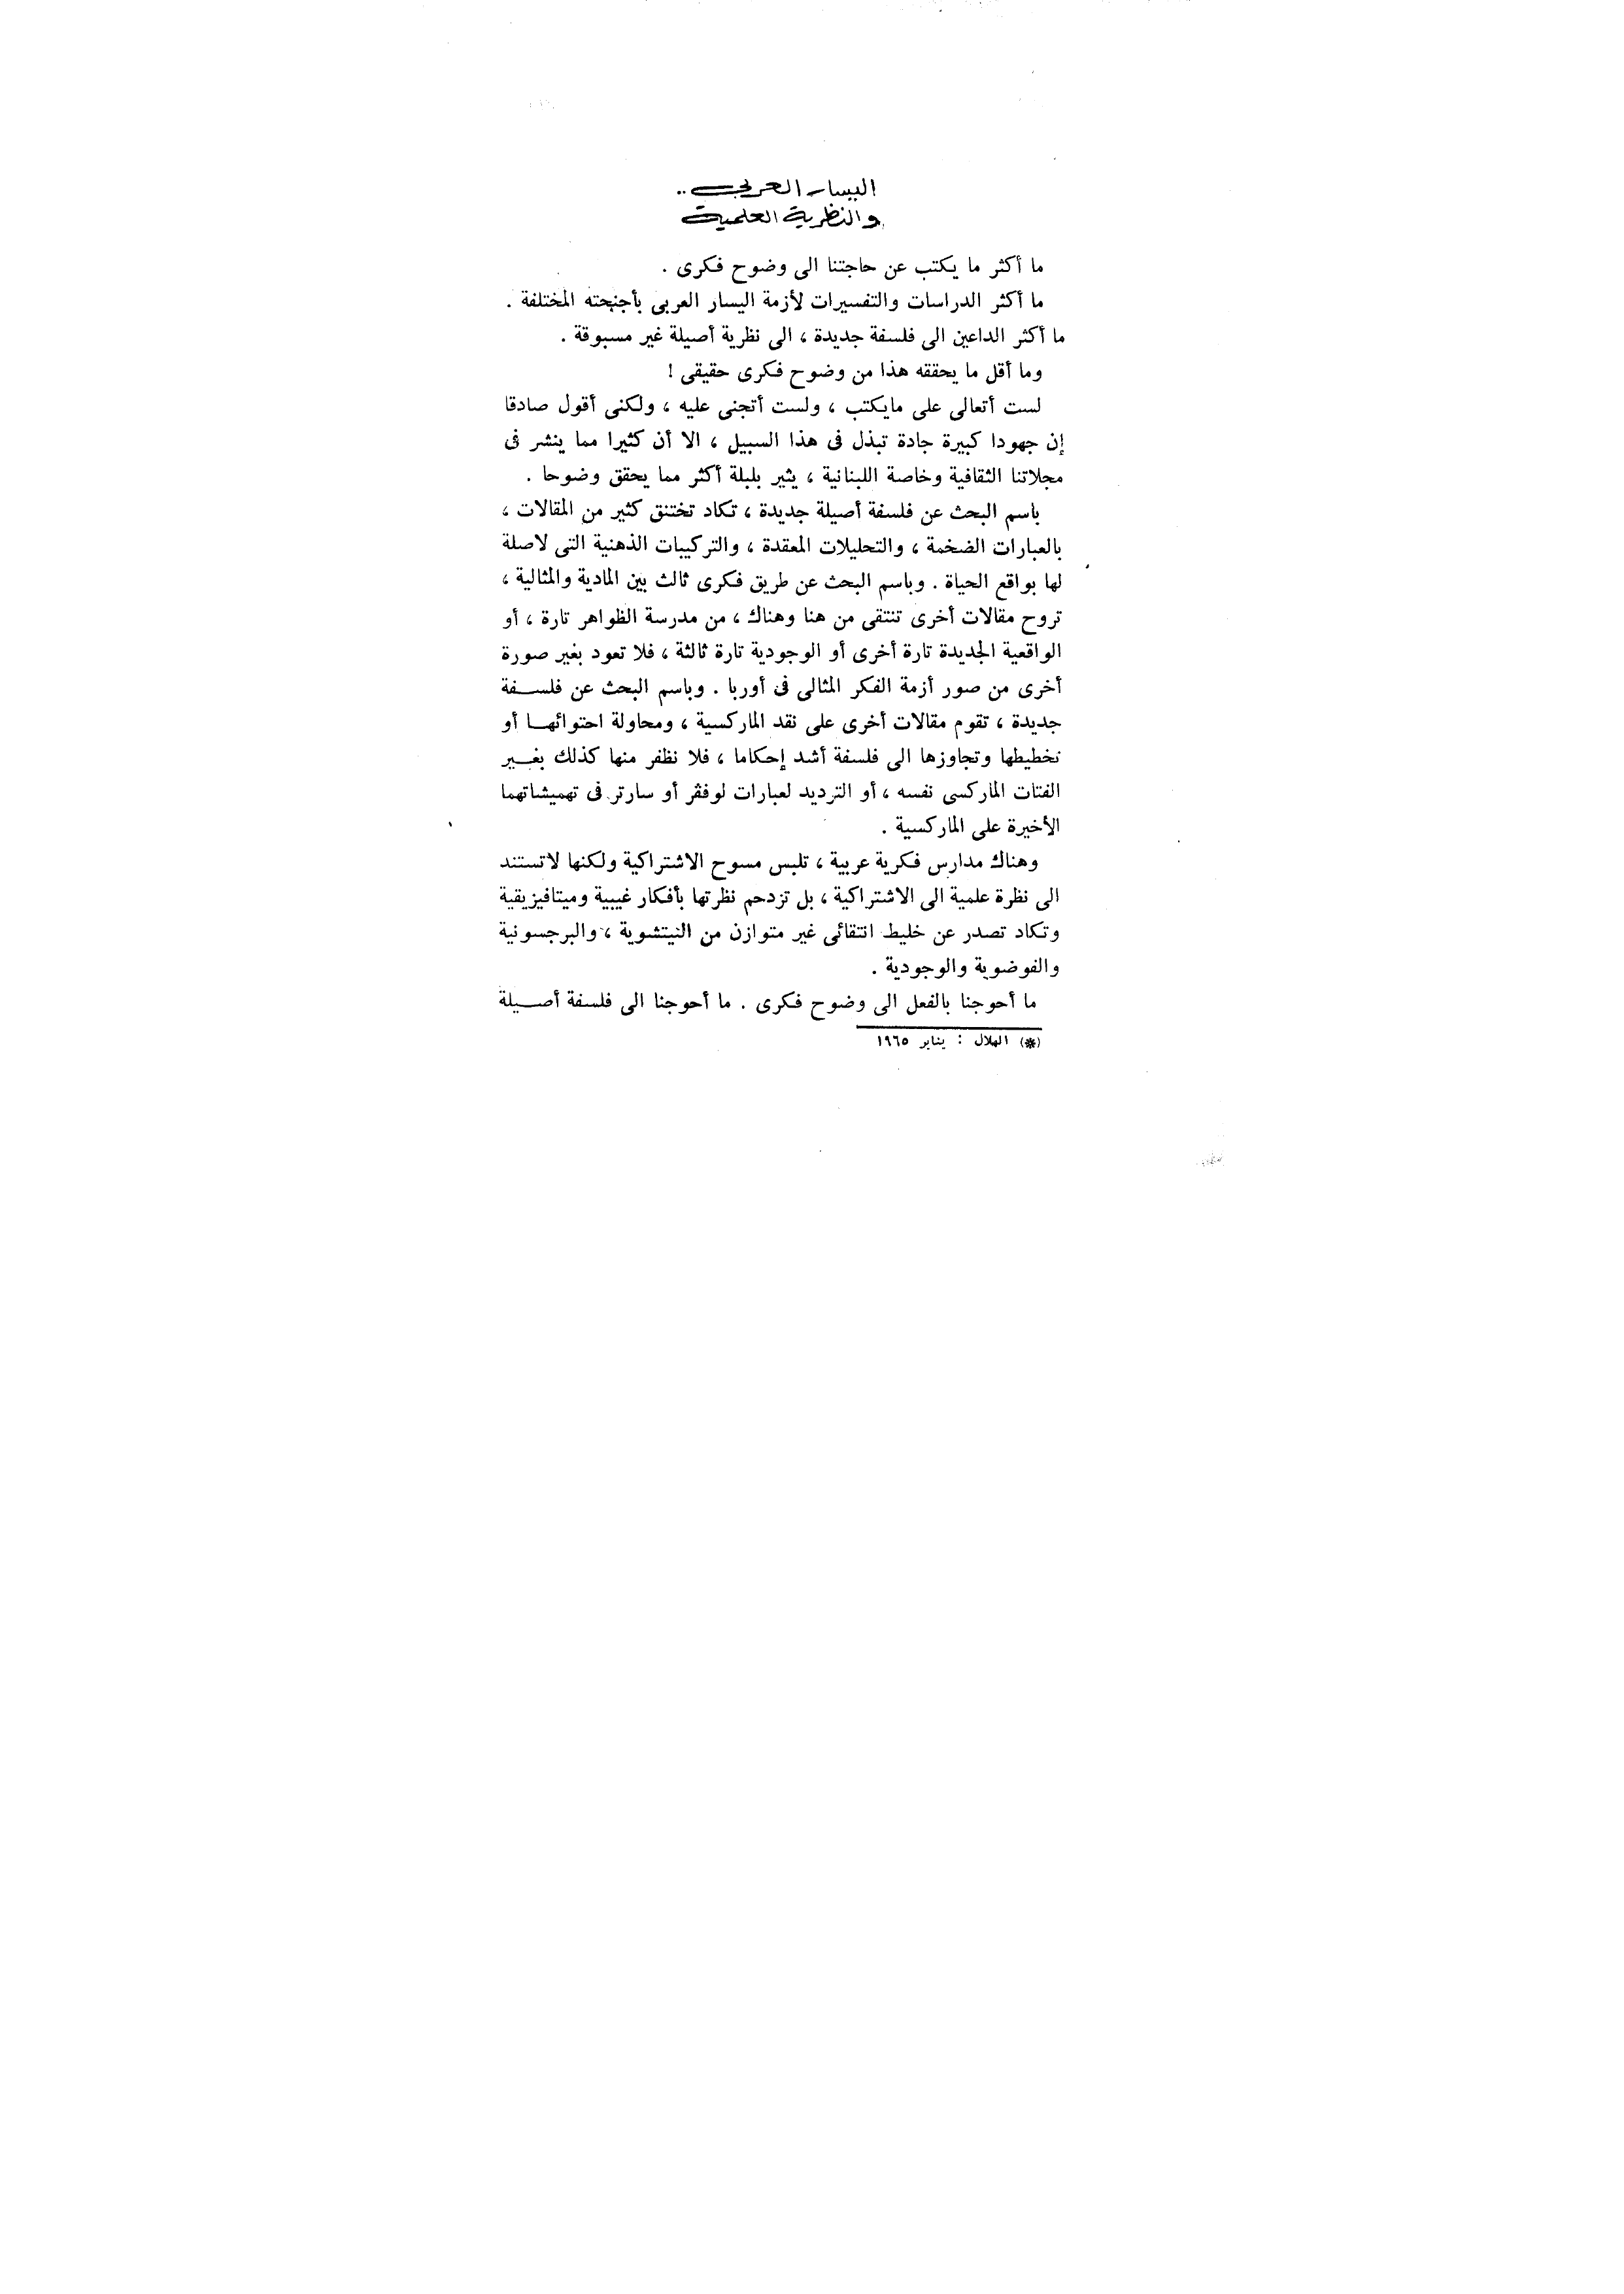 اليسار العربى ..
والنظرية العلمية
ما أكثر ما يكتب عن حاجتنا الى وضوح فكرى .
ما أكثر الدراسات والتفسيرات لأزمة اليسار العربى بأجنحته المختلفة .
ما أكثر الداعين الى فلسفة جديدة ، الى نظرية أصيلة غير مسبوقة .
وما أقل ما يحققه هذا من وضوح فكرى حقيقى !
لست أتعالى على مايكتب ، ولست أتجنى عليه ، ولكنى أقول صادقا
إن جهودا كبيرة جادة تبذل فى هذا السبيل ، الا أن كثيرا مما ينشر فى
مجلاتنا الثقافية وخاصة اللبنانية ، يثير بلبلة أكثر مما يحقق وضوحا .
باسم البحث عن فلسفة أصيلة جديدة ، تكاد تختنق كثير من المقالات ،
بالعبارات الضخمة ، والتحليلات المعقدة ، والتركيبات الذهنية التى لاصلة
لها بواقع الحياة . وباسم البحث عن طريق فكرى ثالث بين المادية والمثالية ،
تروح مقالات أخرى تنتقى من هنا وهناك ، من مدرسة الظواهر تارة ، أو
الواقعية الجديدة تارة أخرى أو الوجودية تارة ثالثة ، فلا تعود بغير صورة
أخرى من صور أزمة الفكر المثالى فى أوربا . وباسم البحث عن فلسفة
جديدة ، تقوم مقالات أخرى على نقد الماركسية ، ومحاولة احتوائها أو
تخطيطها وتجاوزها الى فلسفة أشد إحكاما ، فلا نظفر منها كذلك بغير
الفتات الماركسى نفسه ، أو الترديد لعبارات لوفڤر أو سارتر فى تهميشاتهما
الأخيرة على الماركسية .
وهناك مدارس فكرية عربية ، تلبس مسوح الاشتراكية ولكنها لاتستند
الى نظرة علمية الى الاشتراكية ، بل تزدحم نظرتها بأفكار غيبية وميتافيزيقية
وتكاد تصدر عن خليط انتقائى غير متوازن من النيتشوية ، والبرجسونية
والفوضوية والوجودية .
ما أحوجنا بالفعل الى وضوح فكرى . ما أحوجنا الى فلسفة أصيلة
(*) الهلال : يناير ١٩٦٥